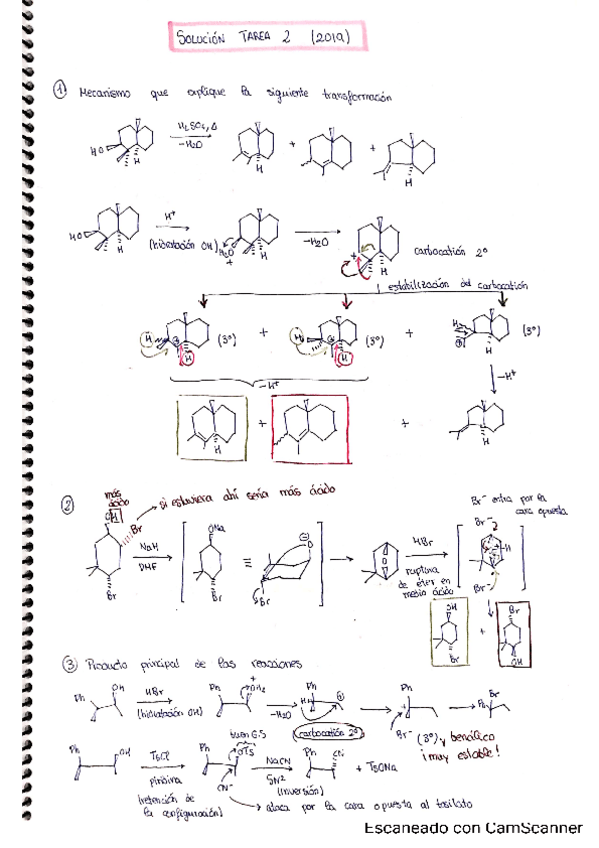 SOLUCIÓN TAREA 2 (2019)
① Mecanismo que explique la siguiente transformación
HO H H₂SO₄, Δ -H₂O + + H H
HO H H⁺ (hidratación OH) H₂O + H -H₂O + H carbocatión 2º
estabilización del carbocatión
H H (3º) + H H (3º) + H (3º)
-H⁺ -H⁺
H + + H
② más ácido OH Br si estuviera ahí sería más ácido
Br⁻ entra por la cara opuesta
NaH DMF Br ONa Br ≡ O Br O HBr ruptura de éter en medio ácido Br⁻ H Br⁻
OH Br + Br OH
③ Producto principal de las reacciones
Ph OH HBr (hidratación OH) Ph OH₂ + -H₂O Ph H carbocatión 2º Ph + Br⁻ (3º) y bencílico ¡muy estable! Ph Br
Ph OH TsCl piridina (retención de la configuración) buen G.S Ph OTs CN⁻ NaCN SN² (inversión) Ph CN + TsONa
ataca por la cara opuesta al tosilato
Escaneado con CamScanner